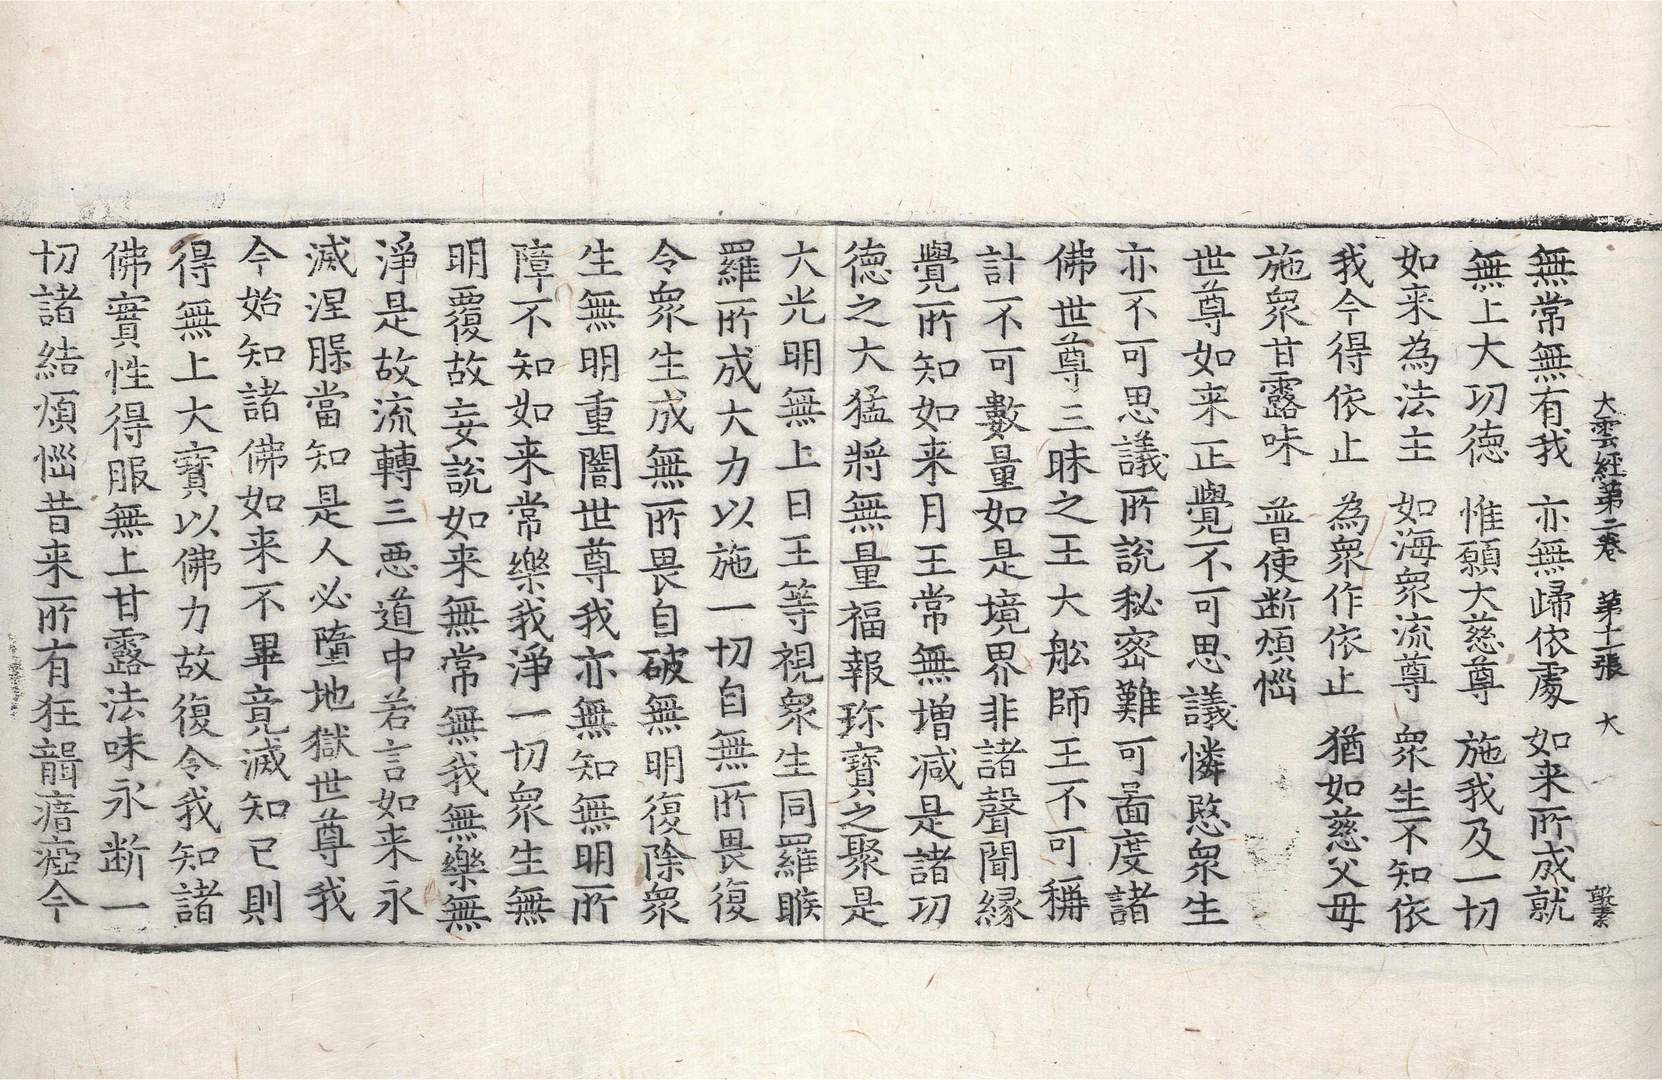 大雲經第二卷 第十一張 大
無常無有我 亦無歸依處 如来所成就
無上大功德 惟願大慈尊 施我及一切
如来為法主 如海衆流尊 衆生不知依
我今得依止 為衆作依止 猶如慈父母
施衆甘露味 普使断煩惱
世尊如来正覺不可思議憐愍衆生
亦不可思議所說秘密難可啚度諸
佛世尊三昧之王大舩師王不可稱
計不可數量如是境界非諸聲聞縁
覺所知如来月王常無增減是諸功
德之大猛將無量福報珎寶之聚是
大光明無上日王等視衆生同羅睺
羅所成大力以施一切自無所畏復
令衆生成無所畏自破無明復除衆
生無明重闇世尊我亦無知無明所
障不知如来常樂我淨一切衆生無
明覆故妄說如来無常無我無樂無
淨是故流轉三惡道中若言如来永
滅涅槃當知是人必墮地獄世尊我
今始知諸佛如来不畢竟滅知已則
得無上大寶以佛力故復令我知諸
佛實性得服無上甘露法味永断一
切諸結煩惱昔来所有狂聾瘖瘂今